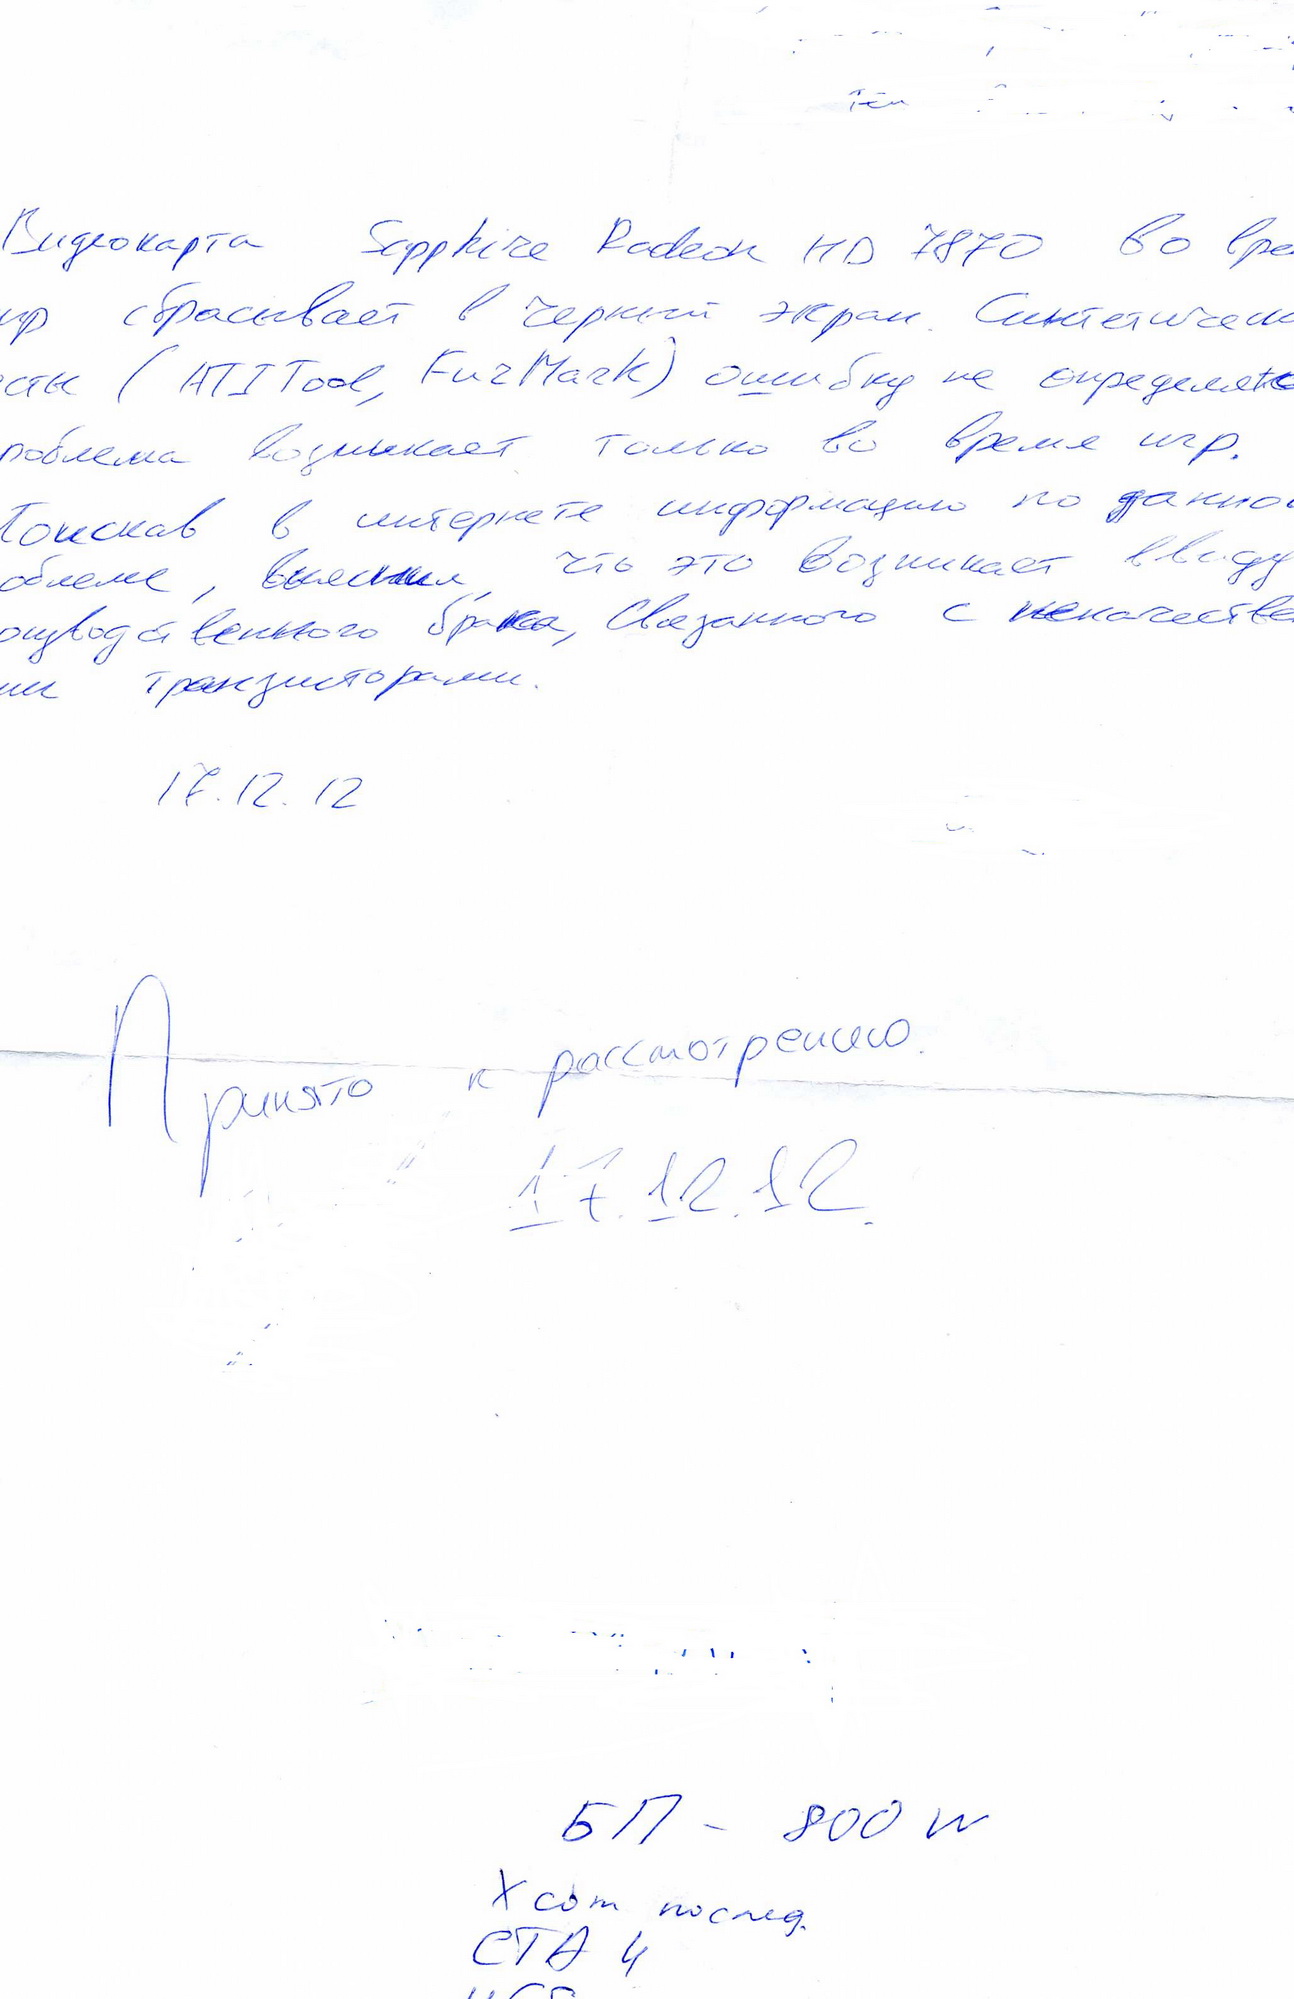 Видеокарта Sapphire Radeon HD 7870 во вре
игр сбрасывает в черный экран. Синтетически
есты (ATITool, FurMark) ошибку не определяю
проблема возникает только во время игр.
Поискав в интернете информацию по данной
облеме, выяснил, что это возникает ввиду
оизводственного брака, связанного с некачестве
ми транзисторами.
17.12.12
Принято к рассмотрению.
17.12.12.
БП - 800 W
Х com послед.
СТА 4